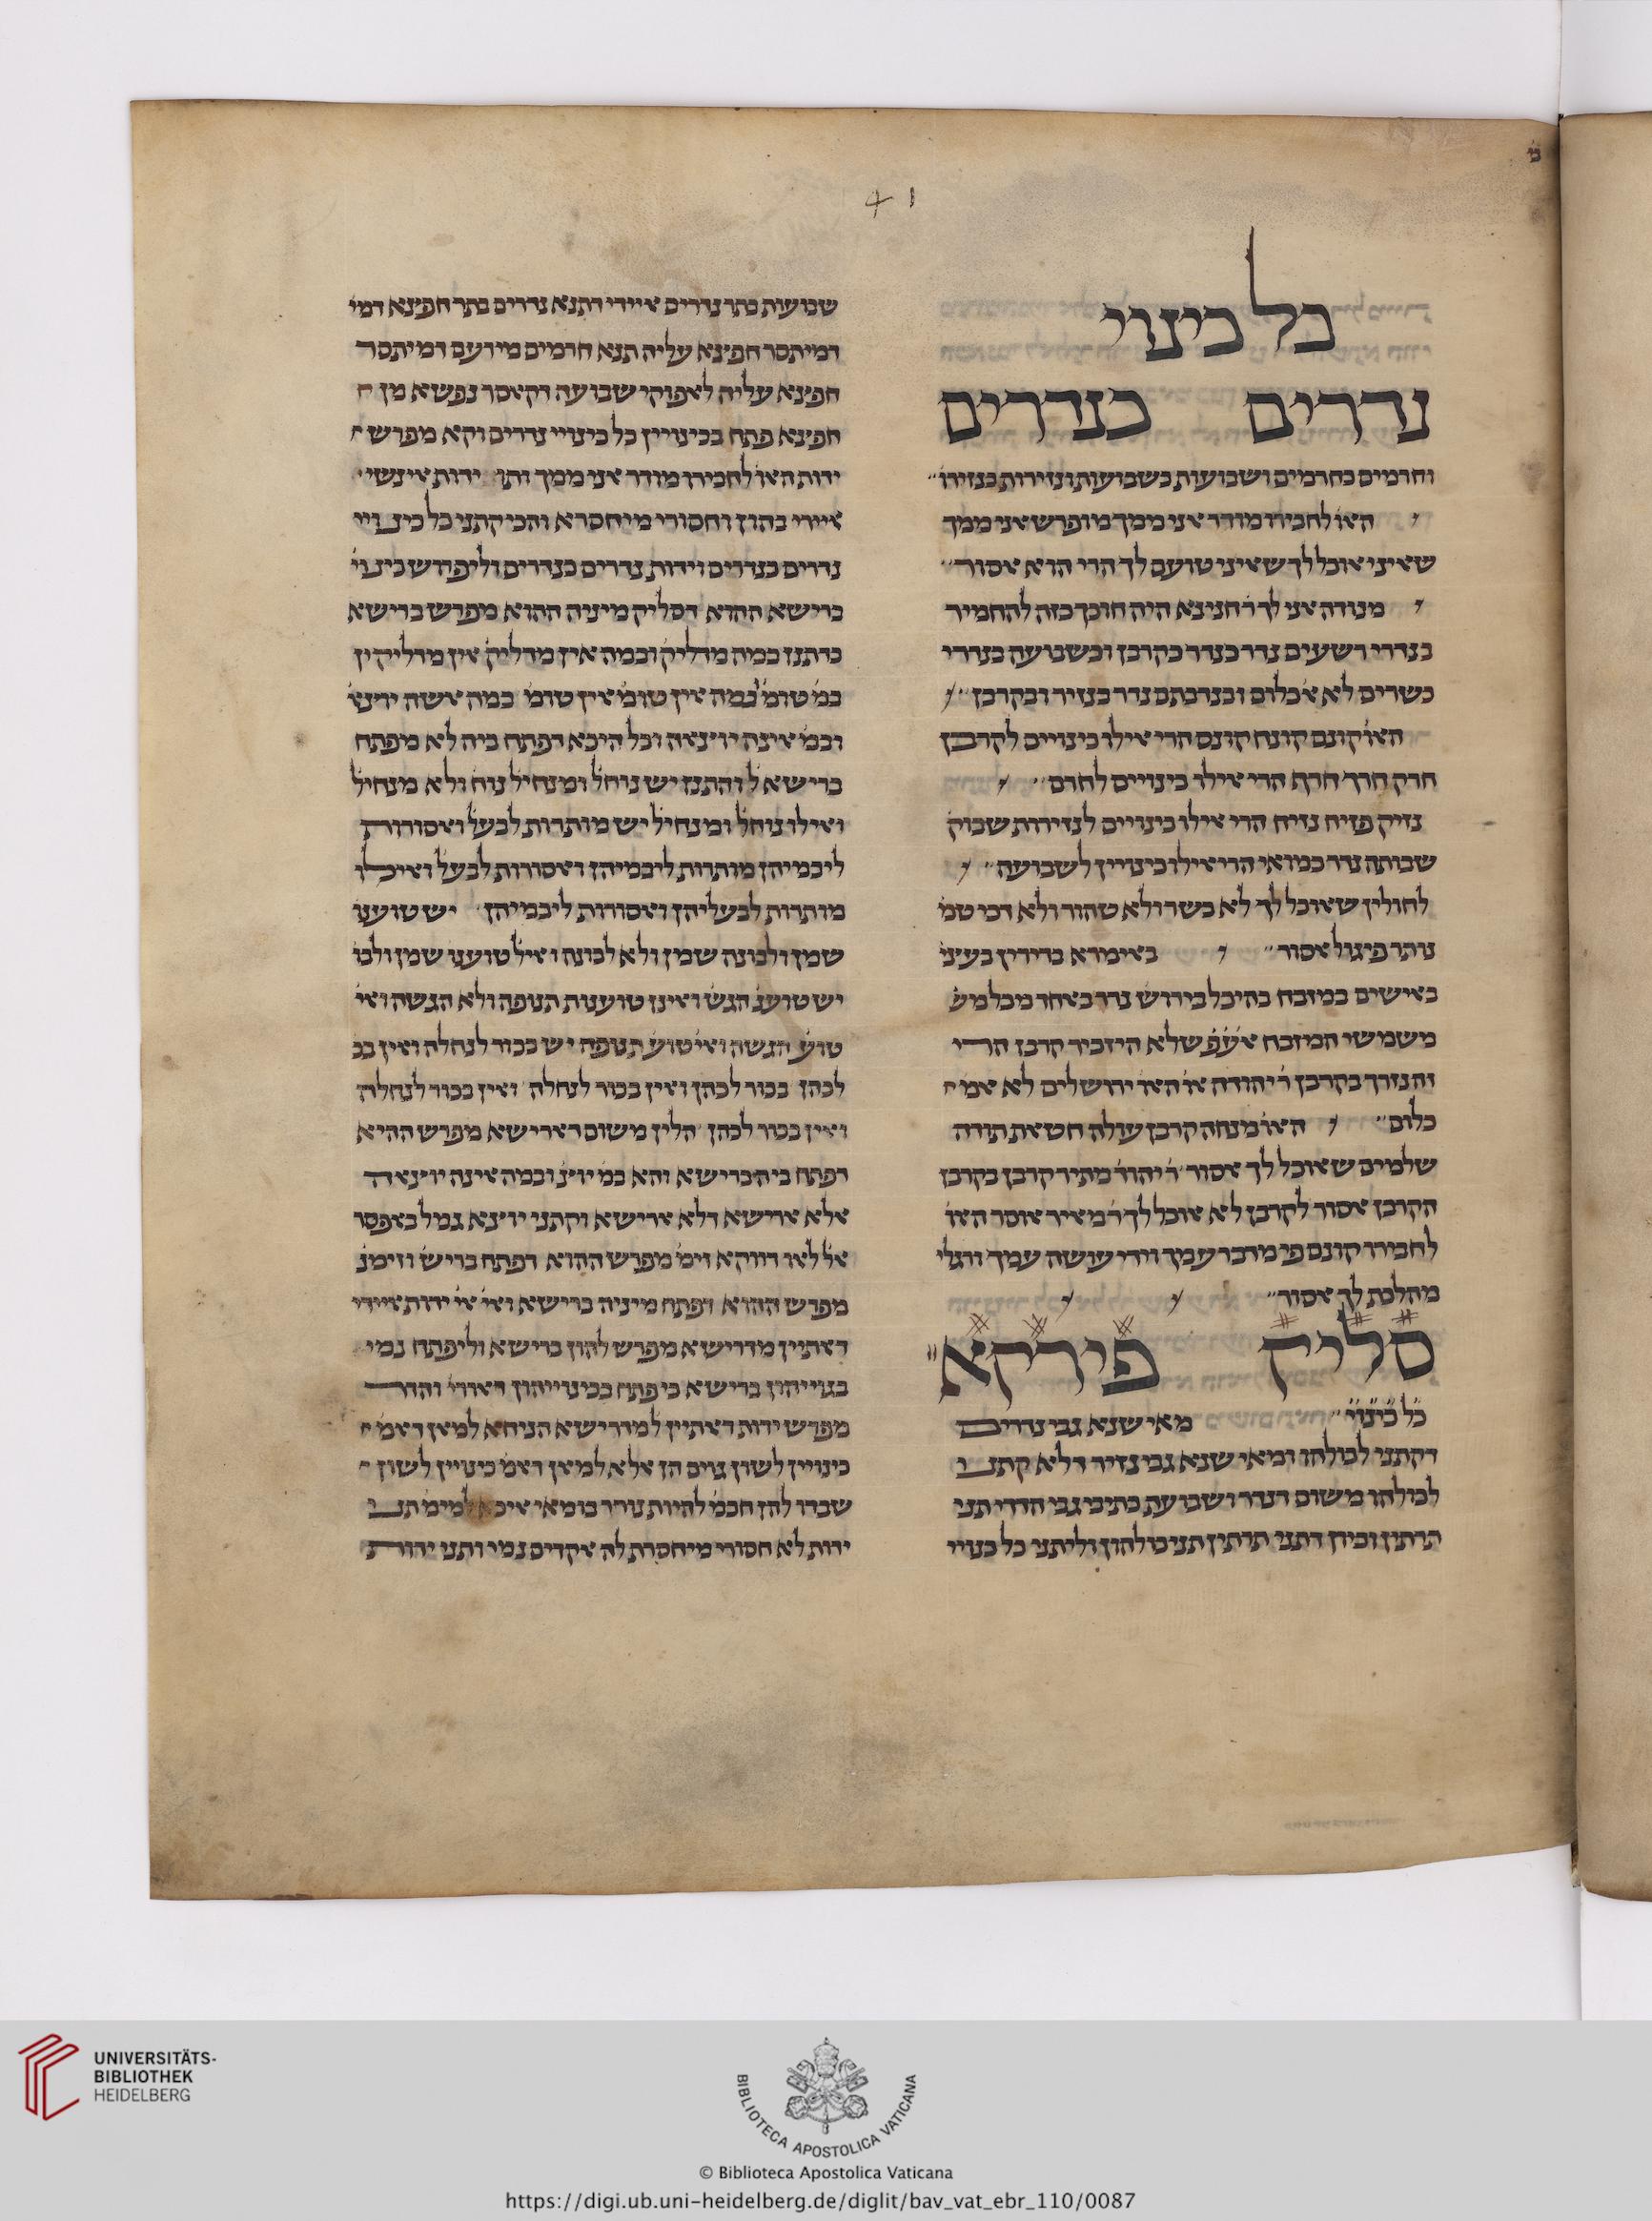 מ
41
כל כינויי
נדרים כנדרים
וחרמים כחרמים ושבועות כשבועות ונזירות כנזירו׳
האו׳ לחבירו מודר אני ממך מופרש אני ממך
שאיני אוכל לך שאיני טועם לך הרי הוא אסור
מנודה אני לך ר׳ חנינא היה חוכך בזה להחמיר
כנדרי רשעים נדר כנדר בקרבן ובשבועה כנדרי
כשרים לא א׳ כלום ובנדבתם נדר בנזיר ובקרבן
האו׳ קונם קונח קונס הרי אילו כינויים לקרבן
חרק חרך חרף הרי אילו כינויים לחרם
נזיק פזיח נזיח הרי אילו כינויים לנזירות שבוק׳
שבותה נדר במואי הרי אילו כינויין לשבועה
לחולין שאוכל לך לא כשר ולא טהור ולא דכי טמ׳
נותר פיגול אסור כאימרא כדידין כעצי׳
כאישים כמזבח כהיכל כירוש׳ נדר באחד מכל מש׳
משמשי המזבח אע׳פ׳ שלא היזכיר קרבן הרי
זה נדר בקרבן ר׳ יהודה או׳ האו׳ ירושלים לא אמ׳
כלום האו׳ מנחה קרבן עולה חטאת תודה
שלמים שאוכל לך אסור ר׳ יהוד׳ מתיר קרבן כקרבן
הקרבן אסור לקרבן לא אוכל לך ר׳ מאיר אוסר האו׳
לחבירו קונם פי מדבר עמך וידי עושה עמך ורגלי
מהלכת לך אסור
סליק פירקא
כל כינוי מאי שנא גבי נדרים
דקתני לכולהו ומאי שנא גבי נזיר דלא קתני
לכולהו משום דנדר ושבועה כתיבי גבי הדדי תני
תרתין וכיון דתני תרתין תנינו להון וליתני כל כנויי
שבועות בתר נדרים איידי דתנא נדרים בתר חפצא דמי
דמיתסר חפצא עליה תנא חרמים מידעם דמיתסר
חפצא עליה לאפוקי שבועה דקאסר נפשא מן
חפצא פתח בכינויין כל כינויי נדרים וקא מפרש
ידות האו׳ לחבירו מודר אני ממך ותו ידות אינשי
איירי בהון וחסורי מיחסרא והכי קתני כל כינויי
נדרים כנדרים וידות נדרים כנדרים וליפרוש כינוי׳
ברישא ההוא דסליק מיניה ההוא מפרש ברישא
כדתנן במה מדליק׳ ובמה אין מדליק׳ אין מדליקין
במ׳ טומ׳ ובמה אין טומ׳ אין טומ׳ במה אשה יוצא׳
ובמ׳ אינה יוצאה וכל היכא דפתח ביה לא מפתח
ברישא ל׳ והתנן יש נוחל׳ ומנחיל׳ נוח׳ ולא מנחיל׳
ואילו נוחל׳ ומנחיל׳ יש מותרות לבעל׳ ואסורות
ליבמיהן מותרות ליבמיהן ואסורות לבעל׳ ואילו
מותרות לבעליהן ואסורות ליבמיהן יש טוענו׳
שמן ולבונה שמן ולא לבונה ואיל׳ טוענו׳ שמן ולבו׳
יש טוענ׳ הגש׳ ואינן טוענות תנופה ולא הגשה ואי׳
טוע׳ הגשה ואי׳ טוע׳ תנופה יש בכור לנחלה ואין בכ
לכהן בכור לכהן ואין בכור לנחלה ואין בכור לנחלה
ואין בכור לכהן הלין משום דארישא מפרש ההיא
דפתח ביה ברישא והא במ׳ יוצ׳ ובמה אינה יוצאה
אלא ארישא דלא ארישא וקתני יוצא גמל באפסר
אל׳ לאו דווקא זימ׳ מפרש ההוא דפתח בריש׳ וזימנ׳
מפרש ההוא דפתח מיניה ברישא ואי׳ אי׳ ידות איידי
דאתיין מדרישא מפרש להון ברישא וליפתח נמי
בגוייהון ברישא כי פתח בכינוייהון דאורי׳ והדר
מפרש ידות דאתיין ל׳ מדרישא הניחא למאן דאמ׳
כינויין לשון גוים הן אלא למאן דאמ׳ כינויין לשון
שבדו להן חכמ׳ להיות נודר בו מאי איכא למימ׳ תני
ידות לא חסורי מיחסרת לה אקדים נמי ותני ידות
UNIVERSITÄTS-
BIBLIOTHEK
HEIDELBERG
BIBLIOTECA APOSTOLICA VATICANA
© Biblioteca Apostolica Vaticana
https://digi.ub.uni-heidelberg.de/diglit/bav_vat_ebr_110/0087